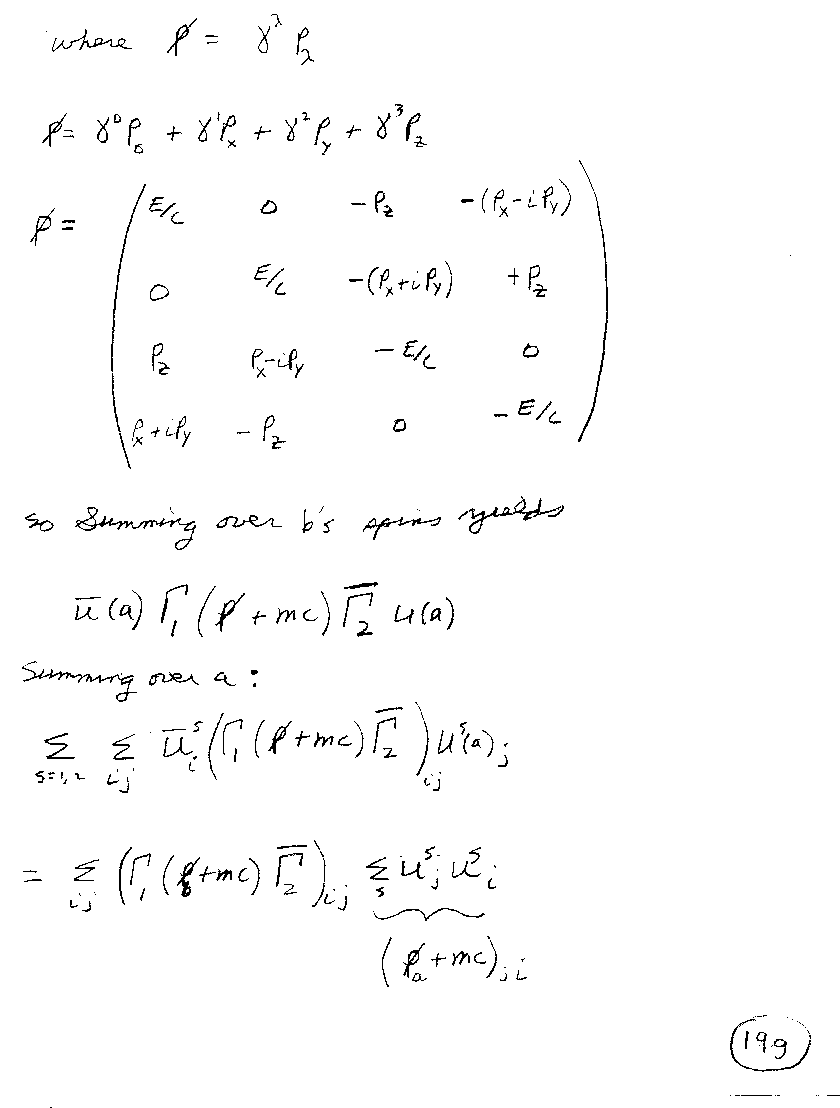 where p̸ = γ^λ p_λ
p̸ = γ⁰p₀ + γ¹p_x + γ²p_y + γ³p_z
p̸ =
E/c 0 -p_z -(p_x-ip_y)
0 E/c -(p_x+ip_y) +p_z
p_z p_x-ip_y -E/c 0
p_x+ip_y -p_z 0 -E/c
so Summing over b's spins yields
ū(a) Γ₁ (p̸ + mc) Γ̄₂ u(a)
Summing over a :
Σ_{s=1,2} Σ_{ij} ū^s_i (Γ₁ (p̸ + mc) Γ̄₂)_{ij} u^s(a)_j
= Σ_{ij} (Γ₁ (p̸_b + mc) Γ̄₂)_{ij} Σ_s u^s_j u^s_i
(p̸_a + mc)_{ji}
19g